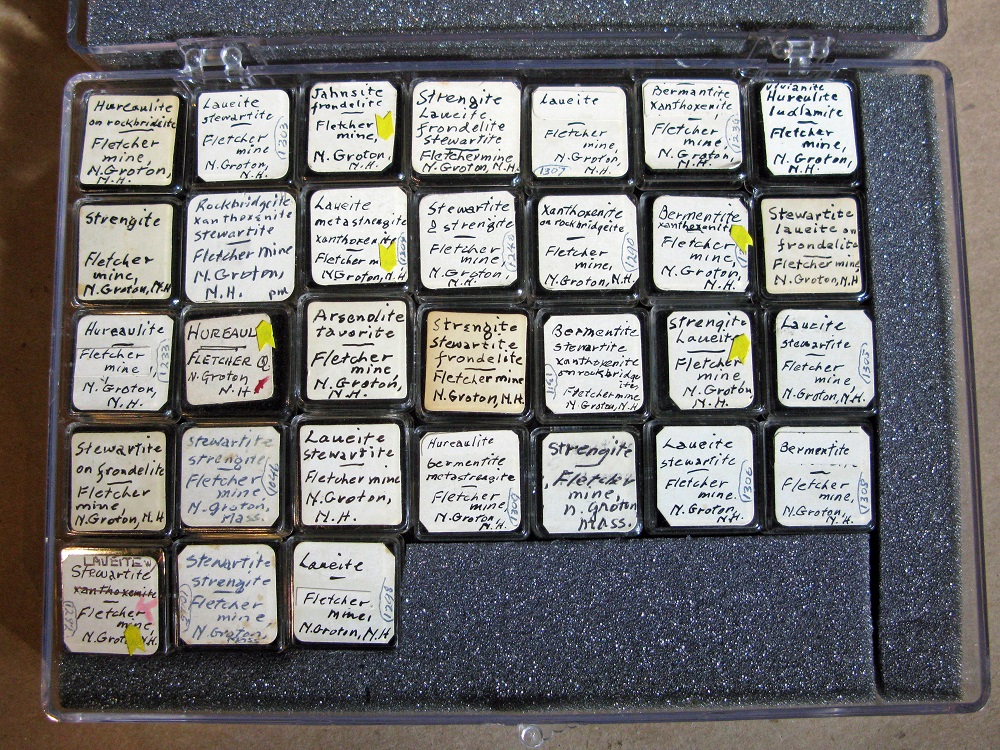 Hureaulite
on rockbridgeite
Fletcher
mine,
N.Groton,
N.H.
Laueite
stewartite
Fletcher
mine,
N.Groton,
N.H.
1303
Jahnsite
frondelite
Fletcher
mine,
N.Groton,
N.H.
Strengite
Laueite,
frondelite
stewartite
Fletcher mine,
N.Groton, N.H.
Laueite
Fletcher
mine,
N.Groton,
N.H.
1307
Bermantite
xanthoxenite,
Fletcher
mine,
N.Groton,
N.H.
1234
vivianite
Hureulite
ludlamite
Fletcher
mine,
N.Groton,
N.H.
Strengite
Fletcher
mine,
N.Groton, N.H
Rockbridgeite
xanthoxenite
stewartite
Fletcher mine
N.Groton,
N.H. pm
Laueite
metastrengite
xanthoxenite
Fletcher
N.Groton, N.H
Stewartite
& strengite
Fletcher
mine,
N.Groton,
N.H.
Xanthoxenite
on rockbridgeite
Fletcher
mine,
N.Groton, N.H.
Bermentite
xanthoxenite
Fletcher
mine,
N.Groton,
N.H.
Stewartite
laueite on
frondelite
Fletcher mine,
N.Groton, N.H
Hureaulite
Fletcher
mine,
N.Groton,
N.H.
1233
HUREAUL
FLETCHER Q
N.Groton
N.H.
Arsenolite
tavorite
Fletcher
mine,
N.Groton, N.H.
Strengite
Stewartite
frondelite
Fletcher mine
N.Groton, N.H.
Bermentite
Stewartite
xanthoxenite
on rockbridge
ite,
Fletcher mine,
N.Groton, N.H
1311
Strengite
Laueite
Fletcher
mine
N.Groton
N.H.
Laueite
stewartite
Fletcher
mine,
N.Groton,
N.H.
1305
Stewartite
on frondelite
Fletcher
mine,
N.Groton, N.H
Stewartite
strengite
Fletcher
mine
N.groton,
Mass.
Laueite
stewartite
Fletcher mine
N.Groton,
N.H.
Hureaulite
bermentite
metastrengite
Fletcher
mine,
N.Groton, N.H.
1309
Strengite
Fletcher
mine,
n. Groton
Mass.
Laueite
stewartite
Fletcher
mine.
N.Groton
N.H.
1306
Bermentite
Fletcher
mine,
N.Groton, N.H
1308
LAUEITE
Stewartite
xanthoxenite
Fletcher
mine,
N.Groton, N.H.
Stewartite
strengite
Fletcher
mine
N.Groton,
Laueite
Fletcher
mine,
N.Groton, N.H
1298